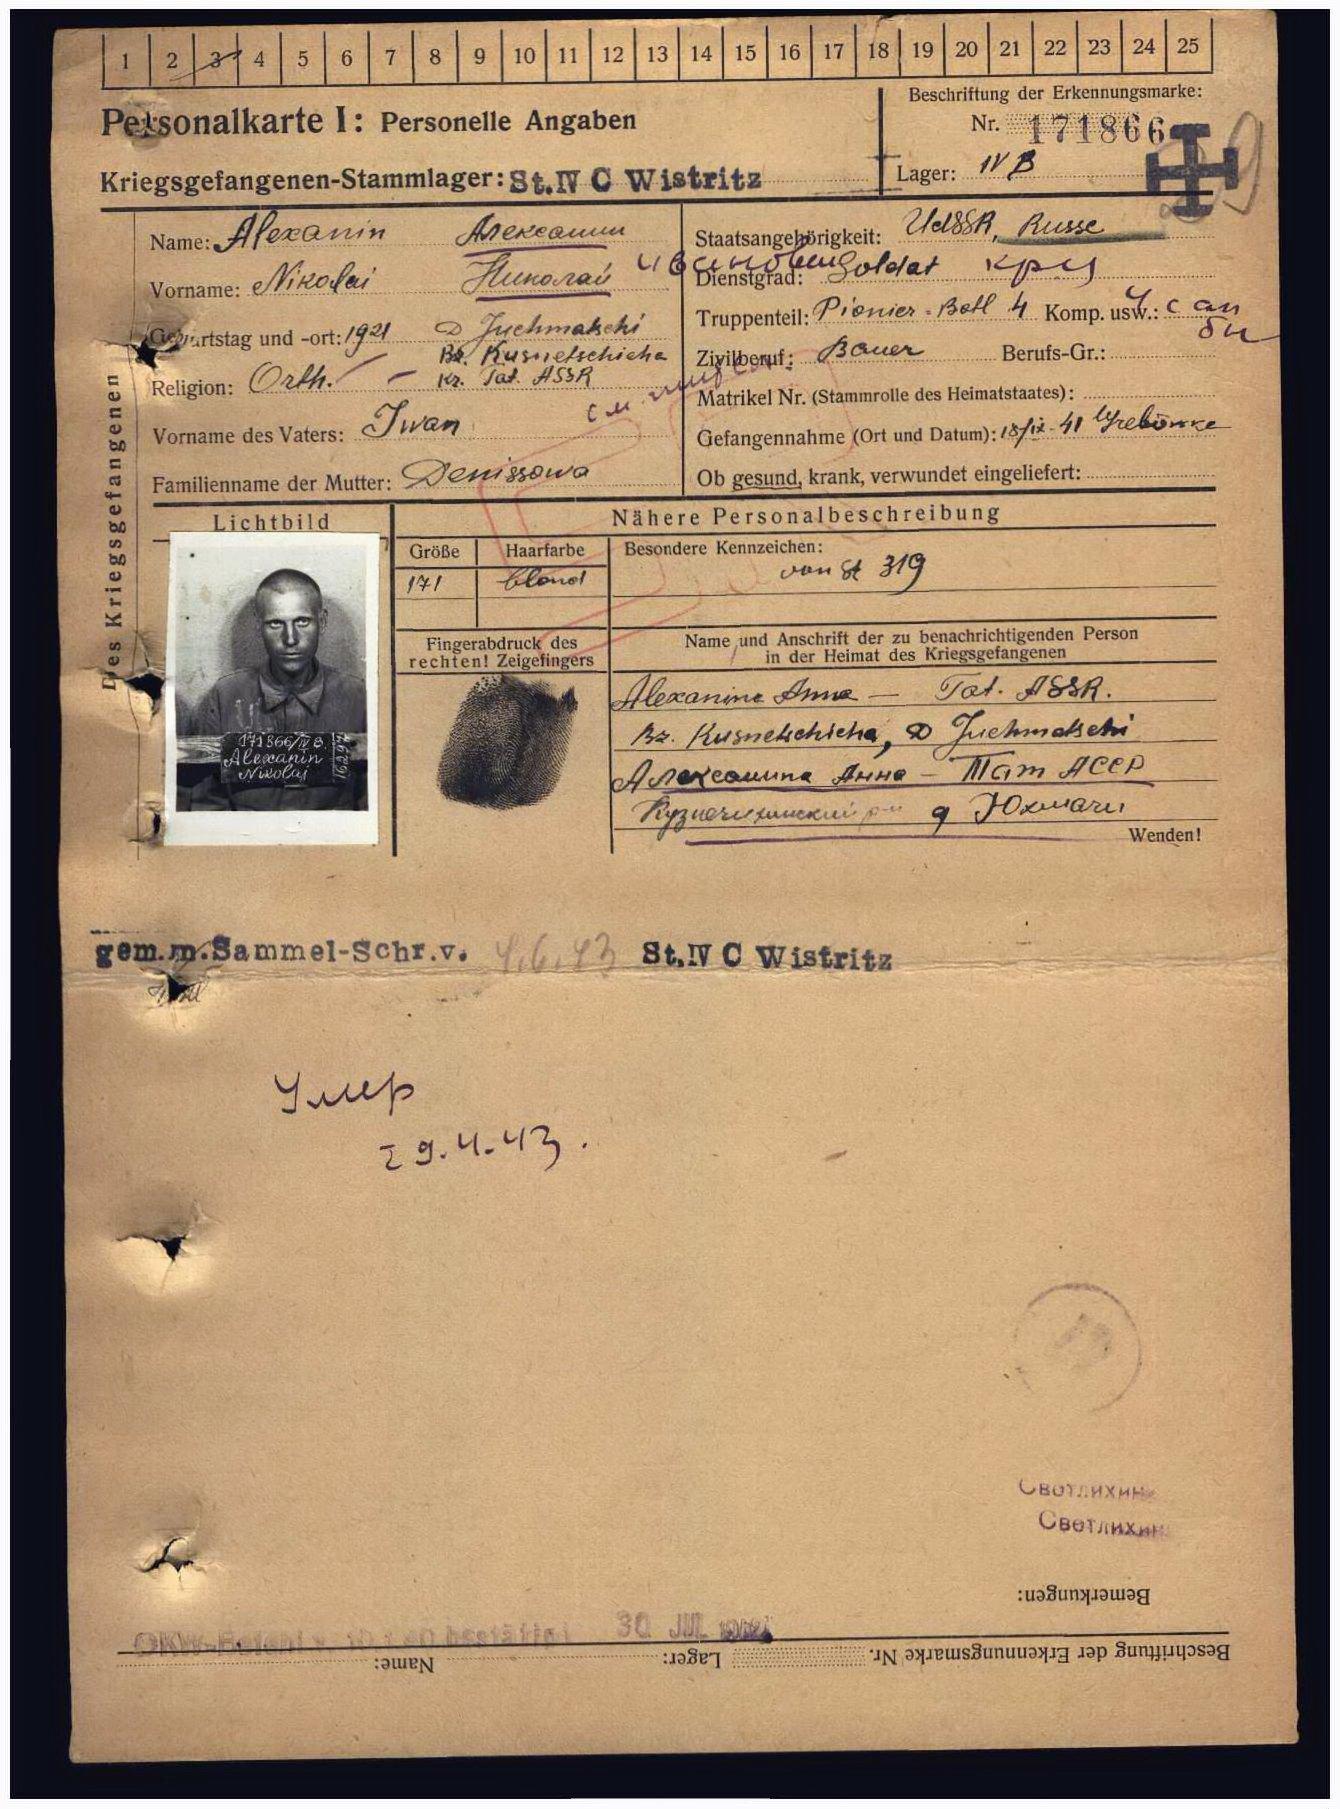 1 2 3 4 5 6 7 8 9 10 11 12 13 14 15 16 17 18 19 20 21 22 23 24 25
Personalkarte I: Personelle Angaben
Kriegsgefangenen-Stammlager: St. IV C Wistritz
Beschriftung der Erkennungsmarke:
Nr. 171866
Lager: IV B
Des Kriegsgefangenen
Name: Alexanin Алексанин
Vorname: Nikolai Николай Иванович
Geburtstag und -ort: 1921 D Juchmatschi
Bz. Kusnetschicha
Kr. Tat. ASSR
Religion: Orth. –
Vorname des Vaters: Iwan
Familienname der Mutter: Denissowa
Staatsangehörigkeit: UdSSR, Russe
Dienstgrad: Soldat
Truppenteil: Pionier-Batl 4 Komp. usw.:
Zivilberuf: Bauer Berufs-Gr.:
Matrikel Nr. (Stammrolle des Heimatstaates):
Gefangennahme (Ort und Datum): 18/IX-41 Grebönke
Ob gesund, krank, verwundet eingeliefert:
Lichtbild
171866/IV B.
Alexanin
Nikolaj
Nähere Personalbeschreibung
Größe Haarfarbe Besondere Kennzeichen:
171 blond von St 319
Fingerabdruck des
rechten! Zeigefingers
Name und Anschrift der zu benachrichtigenden Person
in der Heimat des Kriegsgefangenen
Alexanina Anna — Tat. ASSR.
Bz. Kusnetschicha, D Juchmatschi
Алексанина Анна – Тат АССР
Кузнечихинский р-н д Юхмачи
Wenden!
gem.m.Sammel-Schr.v. 4.6.43 St. IV C Wistritz
Умер
29.4.43.
Светлихин
Светлихин
Bemerkungen:
30 JUL
Beschriftung der Erkennungsmarke Nr. Lager: Name: